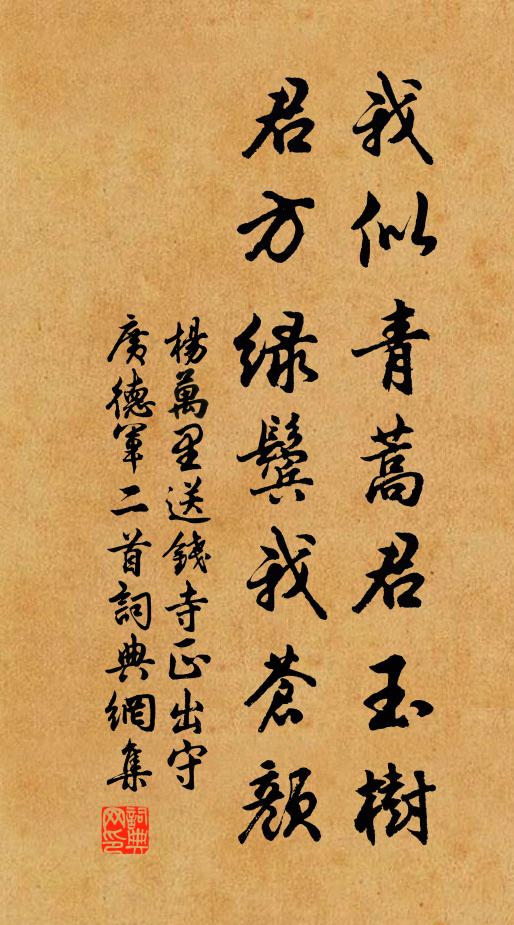 我似青蒿君玉樹
君方緑鬢我蒼顏
楊萬里送錢寺正出守
廣德軍二首詞典網集
詞典
网印